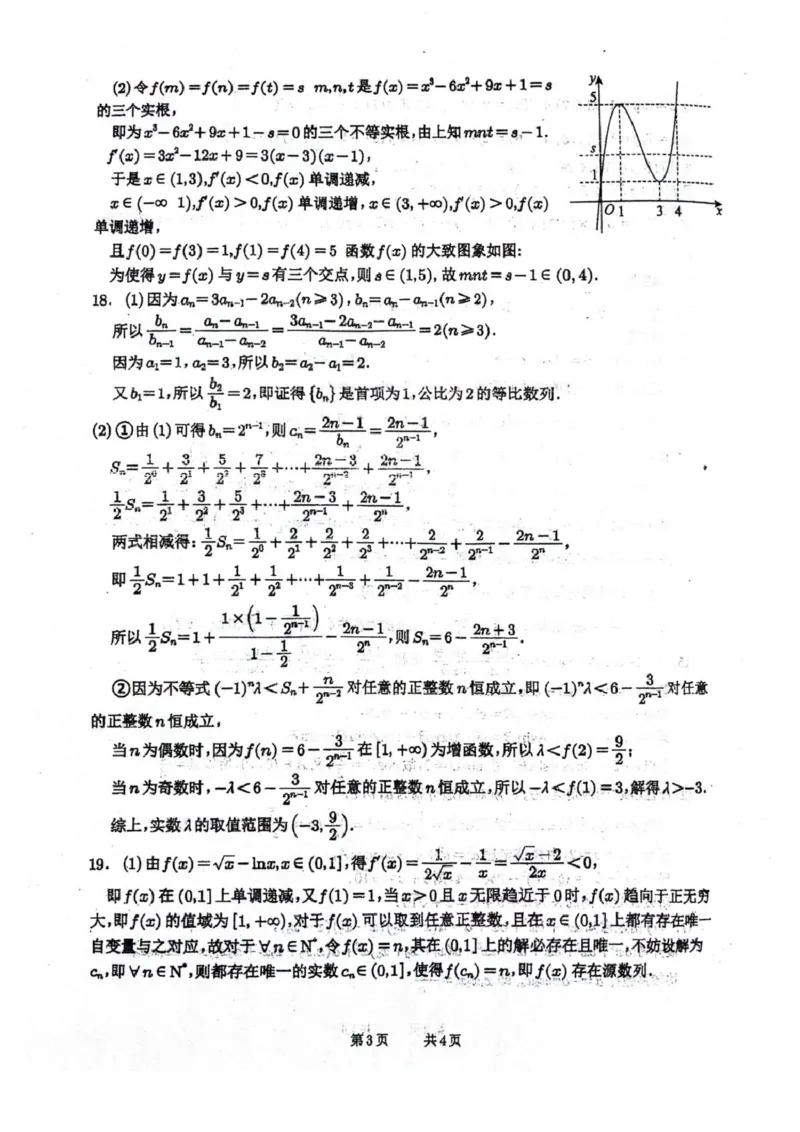 (2)令f(m)=f(n)=f(t)=s m,n,t是f(x)=x³-6x²+9x+1=s
的三个实根，
即为x³-6x²+9x+1-s=0的三个不等实根,由上知mnt=s-1.
f'(x)=3x²-12x+9=3(x-3)(x-1),
于是x∈(1,3),f'(x)<0,f(x)单调递减,
x∈(-∞ 1),f'(x)>0,f(x)单调递增,x∈(3,+∞),f'(x)>0,f(x)
单调递增,
且f(0)=f(3)=1,f(1)=f(4)=5 函数f(x)的大致图象如图:
为使得y=f(x)与y=s有三个交点,则s∈(1,5),故mnt=s-1∈(0,4).
y
5
s
1
O 1 3 4 x
18. (1)因为aₙ=3aₙ₋₁-2aₙ₋₂(n≥3),bₙ=aₙ-aₙ₋₁(n≥2),
所以 bₙ/bₙ₋₁ = (aₙ-aₙ₋₁)/(aₙ₋₁-aₙ₋₂) = (3aₙ₋₁-2aₙ₋₂-aₙ₋₁)/(aₙ₋₁-aₙ₋₂) =2(n≥3).
因为a₁=1,a₂=3,所以b₂=a₂-a₁=2.
又b₁=1,所以 b₂/b₁ =2,即证得{bₙ}是首项为1,公比为2的等比数列.
(2)①由(1)可得bₙ=2ⁿ⁻¹,则cₙ= (2n-1)/bₙ = (2n-1)/2ⁿ⁻¹,
Sₙ= 1/2⁰ + 3/2¹ + 5/2² + 7/2³ +⋯+ (2n-3)/2ⁿ⁻² + (2n-1)/2ⁿ⁻¹,
1/2 Sₙ= 1/2¹ + 3/2² + 5/2³ +⋯+ (2n-3)/2ⁿ⁻¹ + (2n-1)/2ⁿ,
两式相减得: 1/2 Sₙ= 1/2⁰ + 2/2¹ + 2/2² + 2/2³ +⋯+ 2/2ⁿ⁻² + 2/2ⁿ⁻¹ - (2n-1)/2ⁿ,
即 1/2 Sₙ=1+1+ 1/2¹ + 1/2² +⋯+ 1/2ⁿ⁻³ + 1/2ⁿ⁻² - (2n-1)/2ⁿ,
所以 1/2 Sₙ=1+ (1×(1-1/2ⁿ⁻¹))/(1-1/2) - (2n-1)/2ⁿ,则Sₙ=6- (2n+3)/2ⁿ⁻¹.
②因为不等式(-1)ⁿλ<Sₙ+ n/2ⁿ⁻² 对任意的正整数n恒成立,即(-1)ⁿλ<6- 3/2ⁿ⁻¹ 对任意
的正整数n恒成立,
当n为偶数时,因为f(n)=6- 3/2ⁿ⁻¹ 在[1,+∞)为增函数,所以λ<f(2)= 9/2;
当n为奇数时,-λ<6- 3/2ⁿ⁻¹ 对任意的正整数n恒成立,所以-λ<f(1)=3,解得λ>-3.
综上,实数λ的取值范围为(-3, 9/2).
19. (1)由f(x)=√x-lnx,x∈(0,1],得f'(x)= 1/(2√x) - 1/x = (√x-2)/(2x) <0,
即f(x)在(0,1]上单调递减,又f(1)=1,当x>0且x无限趋近于0时,f(x)趋向于正无穷
大,即f(x)的值域为[1,+∞),对于f(x)可以取到任意正整数,且在x∈(0,1]上都有存在唯一
自变量与之对应,故对于∀n∈N*,令f(x)=n,其在(0,1]上的解必存在且唯一,不妨设解为
cₙ,即∀n∈N*,则都存在唯一的实数cₙ∈(0,1],使得f(cₙ)=n,即f(x)存在源数列.
第3页 共4页